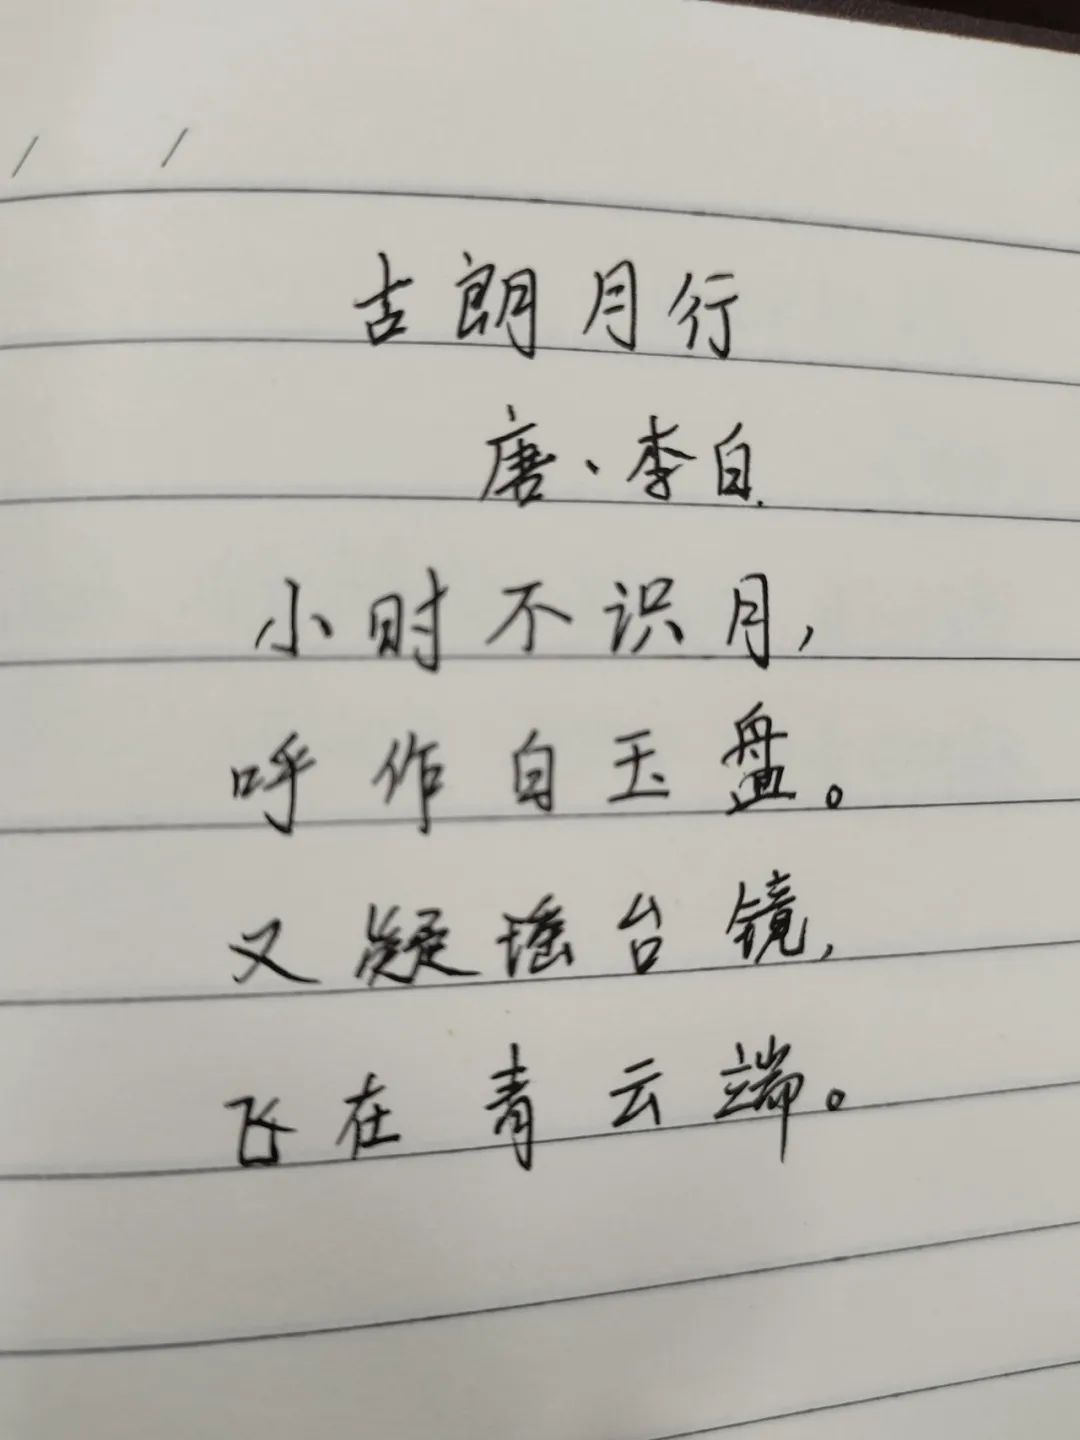 古朗月行
唐·李白
小时不识月，
呼作白玉盘。
又凝瑶台镜，
飞在青云端。